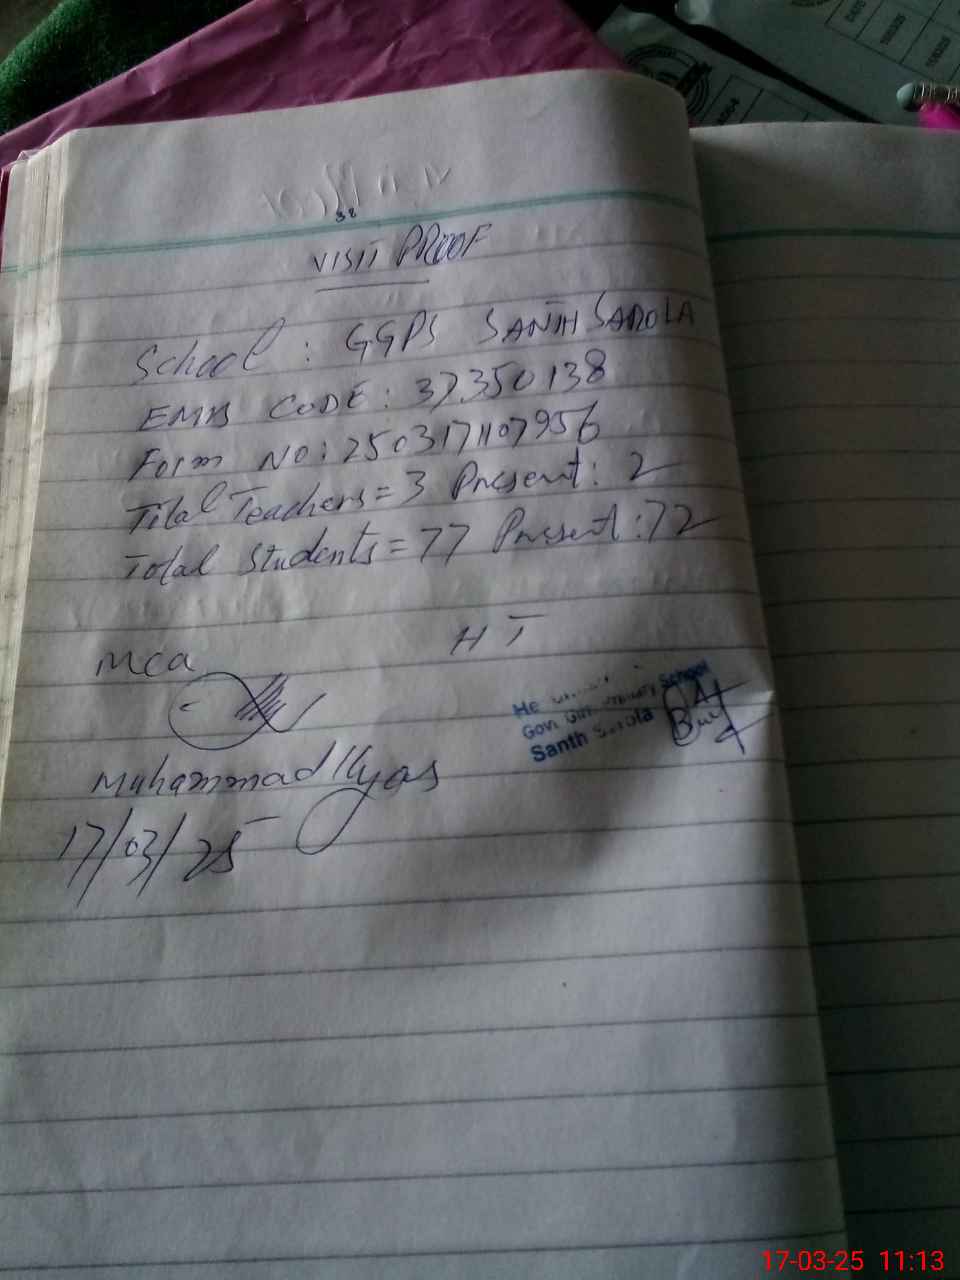 38
VISIT PROOF
School : GGPS SANTH SAROLA
EMIS CODE : 37350138
Form No : 2503171107956
Total Teachers = 3 Present : 2
Total Students = 77 Present : 72
MCA
HT
School
Santh Sarola
Muhammad Ilyas
17/03/25
DATE
17-03-25 11:13